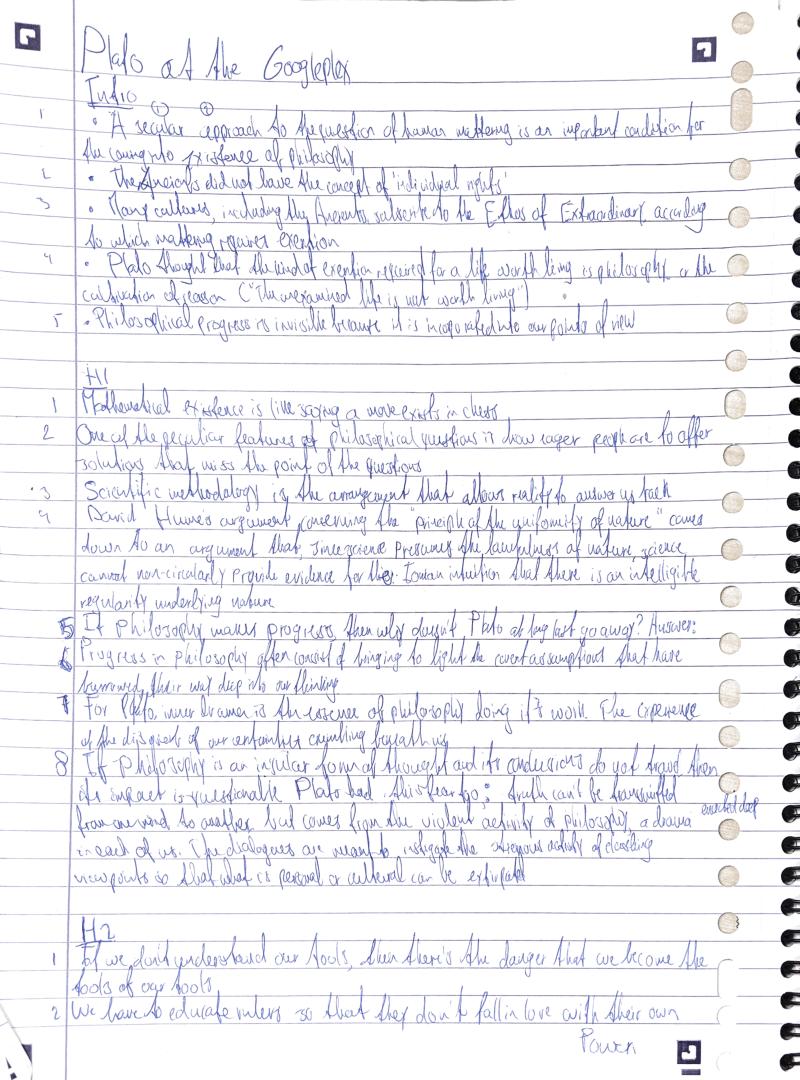 Plato at the Googleplex
Intro
① ②
1 • A secular approach to the question of human mattering is an important condition for
the coming into existence of philosophy
2 • The Ancients did not have the concept of 'individual rights'
3 • Many cultures, including the Ancients, subscribe to the Ethos of Extraordinary, according
to which mattering requires exertion
4 • Plato thought that the kind of exertion required for a life worth living is philosophy, or the
cultivation of reason ("The unexamined life is not worth living")
5 • Philosophical progress is invisible because it is incorporated into our points of view
H1
1 Mathematical existence is like saying a move exists in chess
2 One of the peculiar features of philosophical questions is how eager people are to offer
solutions that miss the point of the questions
3 Scientific methodology is the arrangement that allows reality to answer us back
4 David Hume's argument concerning the "principle of the uniformity of nature" comes
down to an argument that, since science presumes the lawfulness of nature, science
cannot non-circularly provide evidence for the human intuition that there is an intelligible
regularity underlying nature
5 If philosophy makes progress, then why doesn't Plato at long last go away? Answer:
6 Progress in philosophy often consist of bringing to light the covert assumptions that have
burrowed their way deep into our thinking
7 For Plato, inner drama is the essence of philosophy doing it's work. The experience
of the disquiet of our certainties crumbling beneath us
8 If philosophy is an insular form of thought and its conclusions do not travel then
its impact is questionable Plato had this fear too: truth can't be transmitted
from one mind to another but comes from the violent activity of philosophy, a drama enacted deep
in each of us. The dialogues are meant to instigate the strenuous activity of clashing
viewpoints so that what is personal or cultural can be extirpated
H2
1 If we don't understand our tools, then there's the danger that we become the
tools of our tools
2 We have to educate rulers so that they don't fall in love with their own
Power